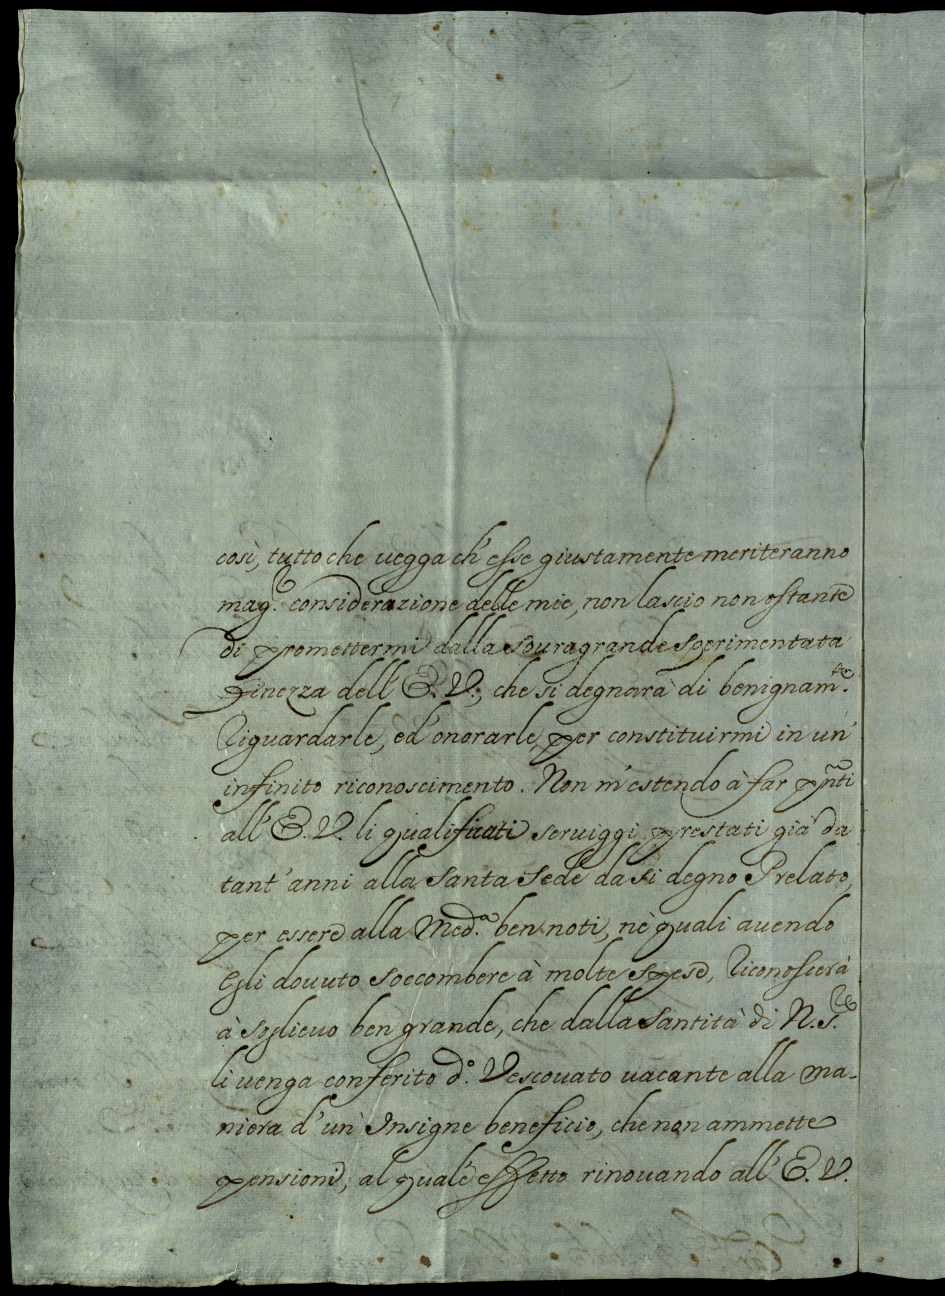 così, tutto che uegga ch'esse giustamente meriteranno
mag.r considerazione delle mie, non lascio non ostante
di promettermi dalla souragrande sperimentata
finezza dell'E. V., che si degnarà di benignam.te
riguardarle, ed'onorarle, per constituirmi in un'
infinito riconoscimento. Non m'estendo à far pn̄ti
all'E. V. li qualificati seruiggi prestati già da
tant'anni alla Santa Sede da sì degno Prelato,
per essere alla Med.a ben noti, nè quali auendo
Egli douuto soccombere à molte spese, riconoscerà
à soglieuo ben grande, che dalla Santità di N. S.re
li uenga conferito d.o Vescouato uacante alla ma-
niera d'un' Insigne beneficio, che non ammette
pensioni, al quale effetto rinouando all'E. V.